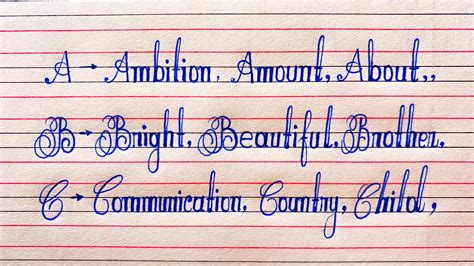 A → Ambition, Amount, About,,
B → Bright, Beautiful, Brother.
C → Communication, Country, Child,